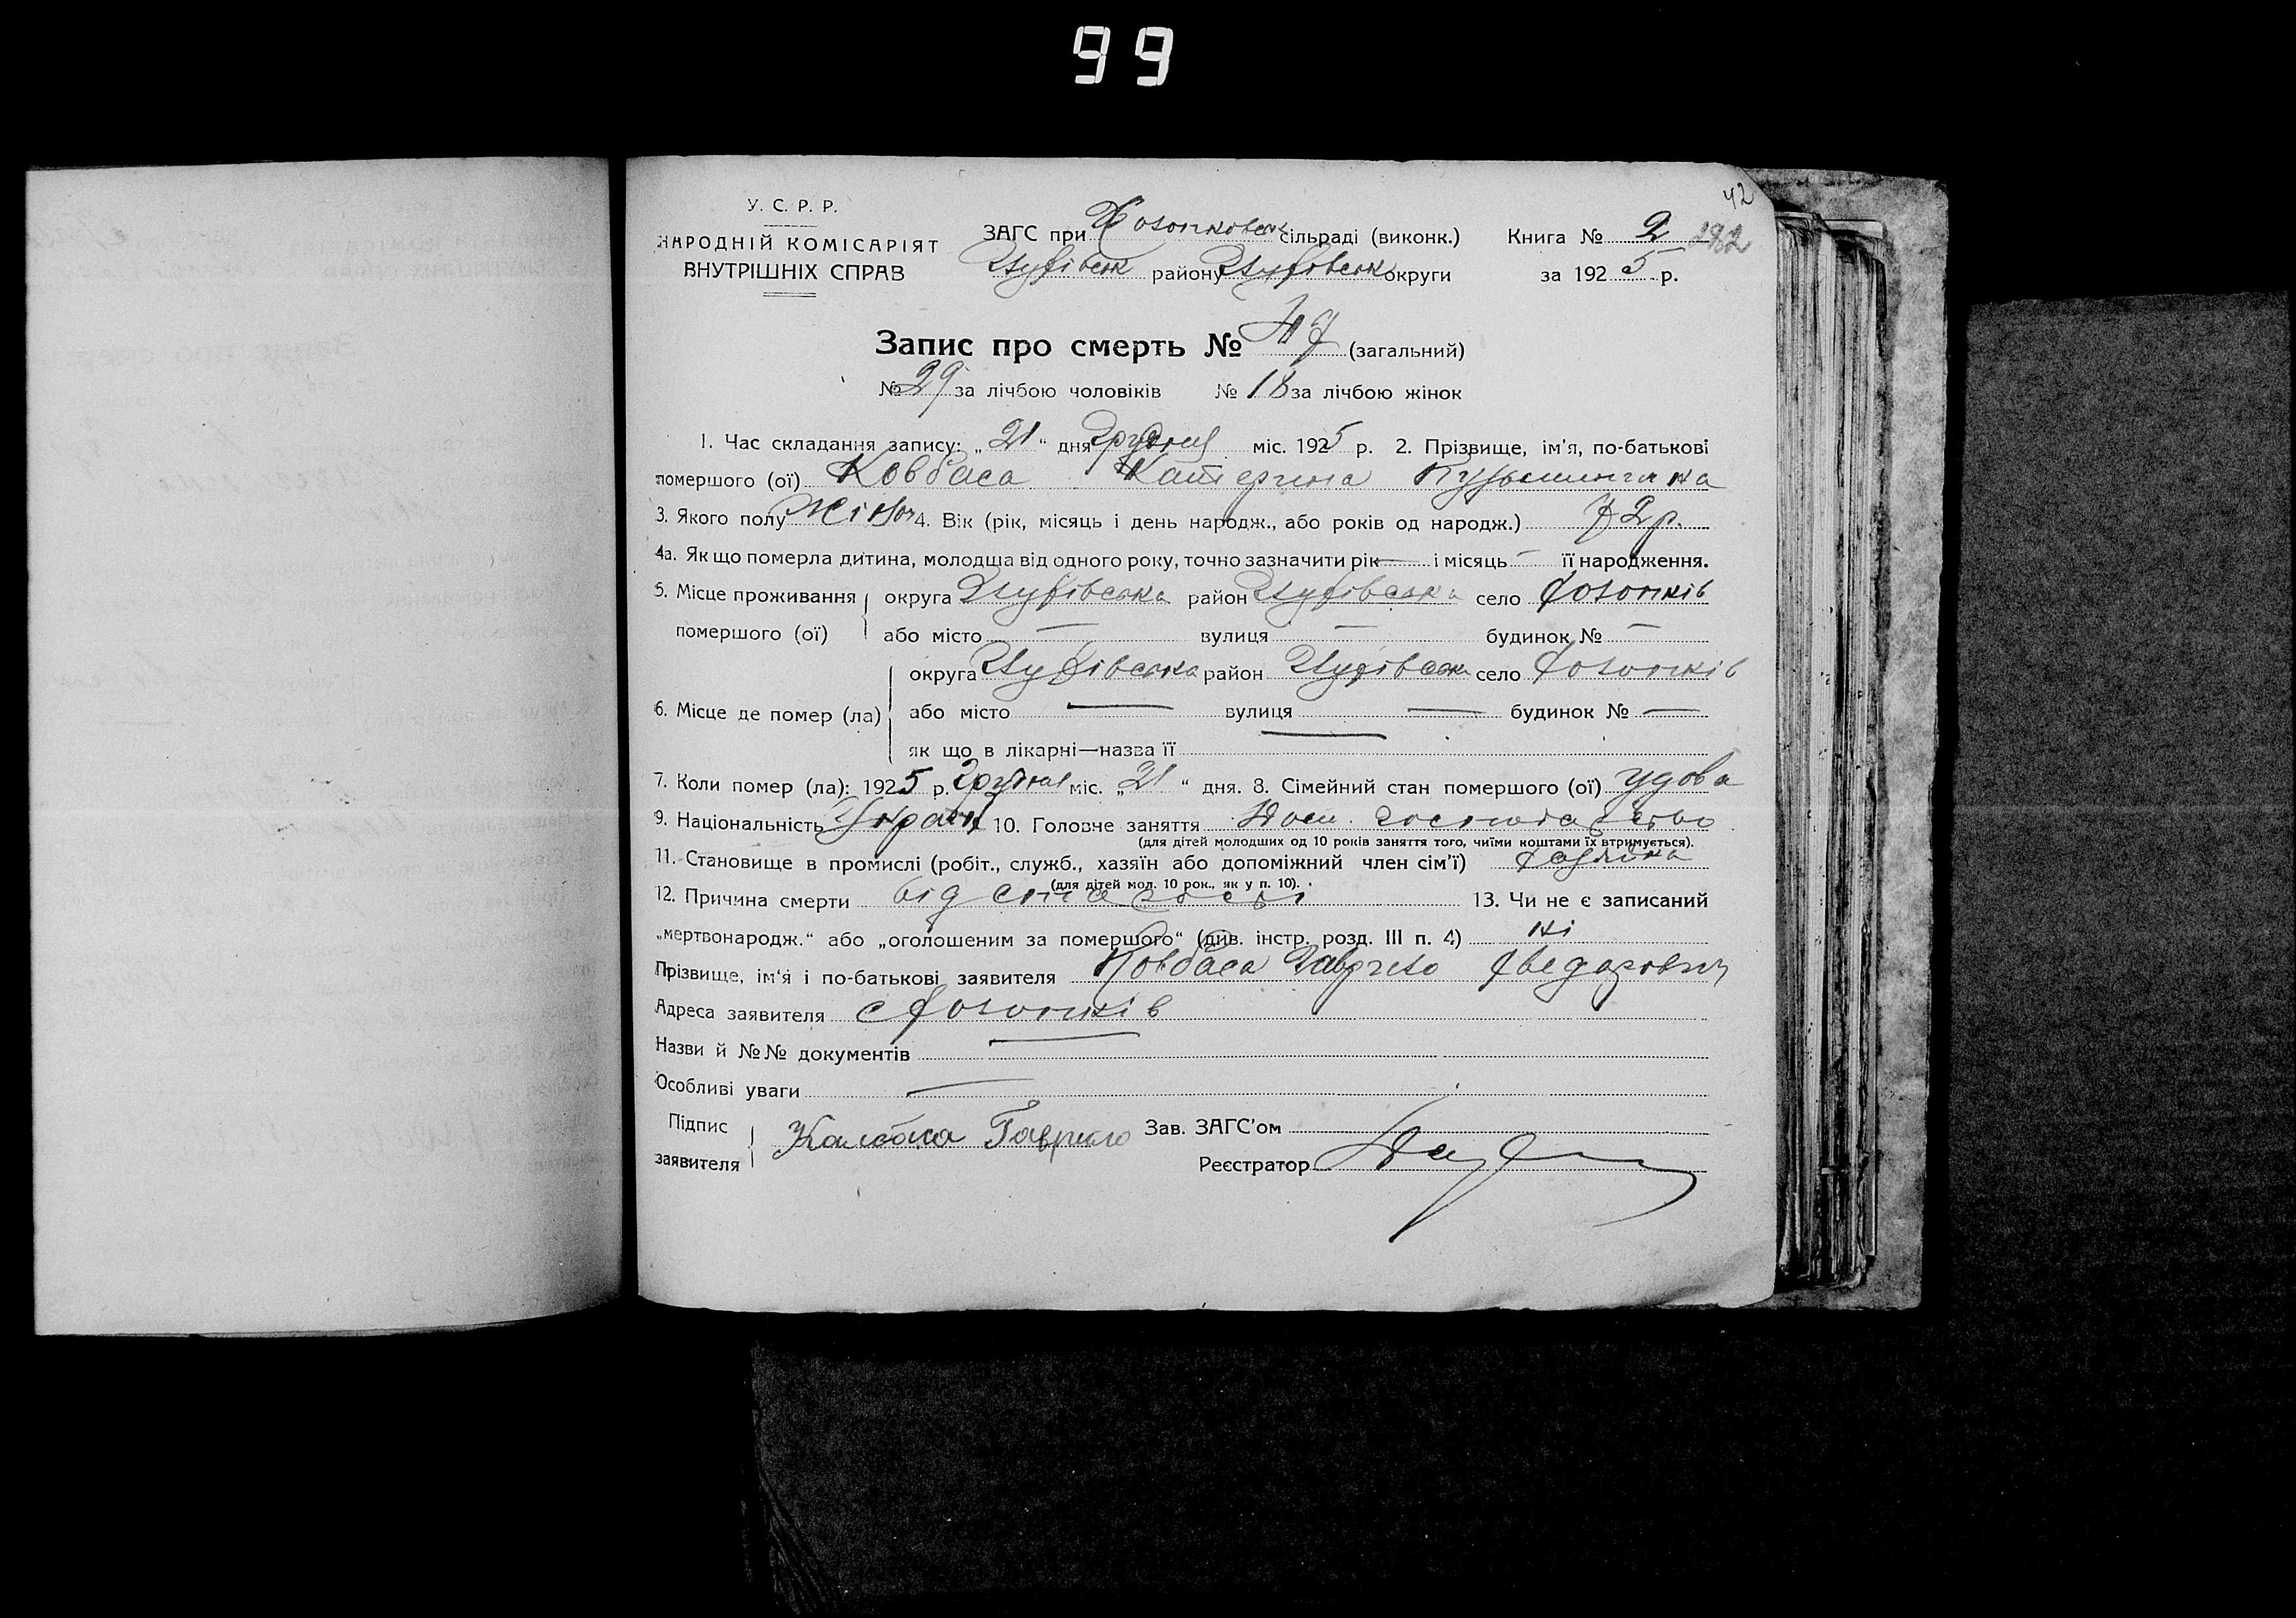 99
42
У. С. Р. Р.
НАРОДНІЙ КОМІСАРІЯТ
ВНУТРІШНІХ СПРАВ
ЗАГС при Хотминовськ сільраді (виконк.) Книга № 2 182
Глухівськ району Глухівськ округи за 1925 р.
Запис про смерть № 47 (загальний)
№ 29 за лічбою чоловіків № 18 за лічбою жінок
1. Час складання запису: „21“ дня Грудня міс. 1925 р. 2. Прізвище, ім'я, по-батькові
помершого (ої) Ковбаса Катерина Кузьминична
3. Якого полу Жіноч 4. Вік (рік, місяць і день народж., або років од народж.) 72 р.
4а. Як що померла дитина, молодша від одного року, точно зазначити рік — і місяць — її народження.
5. Місце проживання округа Глухівська район Глухівська село
помершого (ої) або місто — вулиця — будинок № —
округа Глухівська район Глухівськ село
6. Місце де помер (ла) або місто — вулиця — будинок № —
як що в лікарні—назва її —
7. Коли помер (ла): 1925 р. Грудня міс. „21“ дня. 8. Сімейний стан помершого (ої) удова
9. Національність Украін 10. Головче заняття Дом. господарство
(для дітей молодших од 10 років заняття того, чиїми коштами їх втримується).
11. Становище в промислі (робіт., служб., хазяїн або допоміжний член сім'ї) хазяйка
(для дітей мол. 10 рок., як у п. 10).
12. Причина смерти від старості 13. Чи не є записаний
„мертвонародж.“ або „оголошеним за помершого“ (див. інстр. розд. III п. 4) ні
Прізвище, ім'я і по-батькові заявителя Ковбаса Гаврило Хведорович
Адреса заявителя с
Назви й №№ документів —
Особливі уваги —
Підпис
заявителя Калбаса Гаврило Зав. ЗАГС'ом
Реєстратор